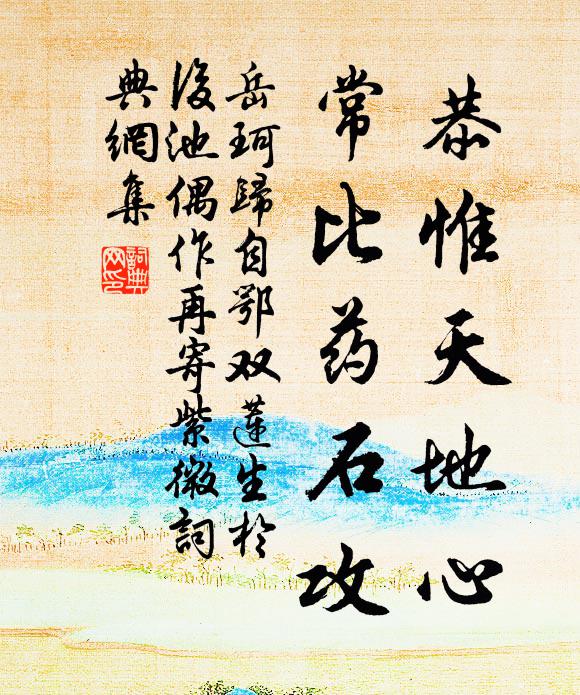 恭惟天地心
常比药石攻
岳珂歸自鄂双蓮生於
後池偶作再寄紫微詞
典網集
詞典
网印